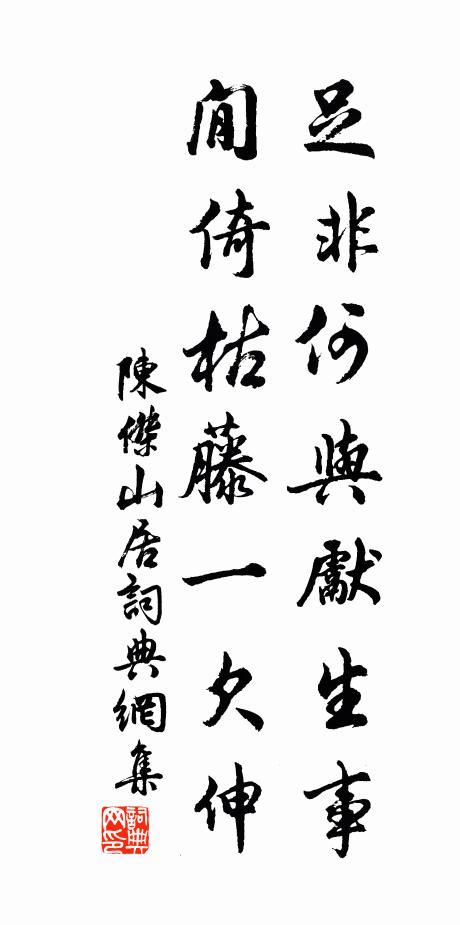 是非何與獻生事
閒倚枯藤一欠伸
陳傑山居詞典網集
詞典网印